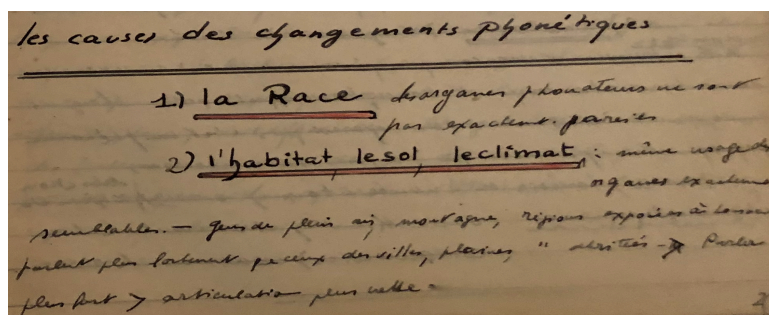 les causes des changements phonétiques
1.) la Race les organes phonateurs ne sont
pas exactent. pareils
2) l'habitat, le sol, le climat, : même usage des
organes exactemt
semblables. — gens de plein air, montagne, régions exposées à
parlent plus fortement que ceux des villes, plaines, " abritées → Parler
plus fort > articulation plus nette.
2